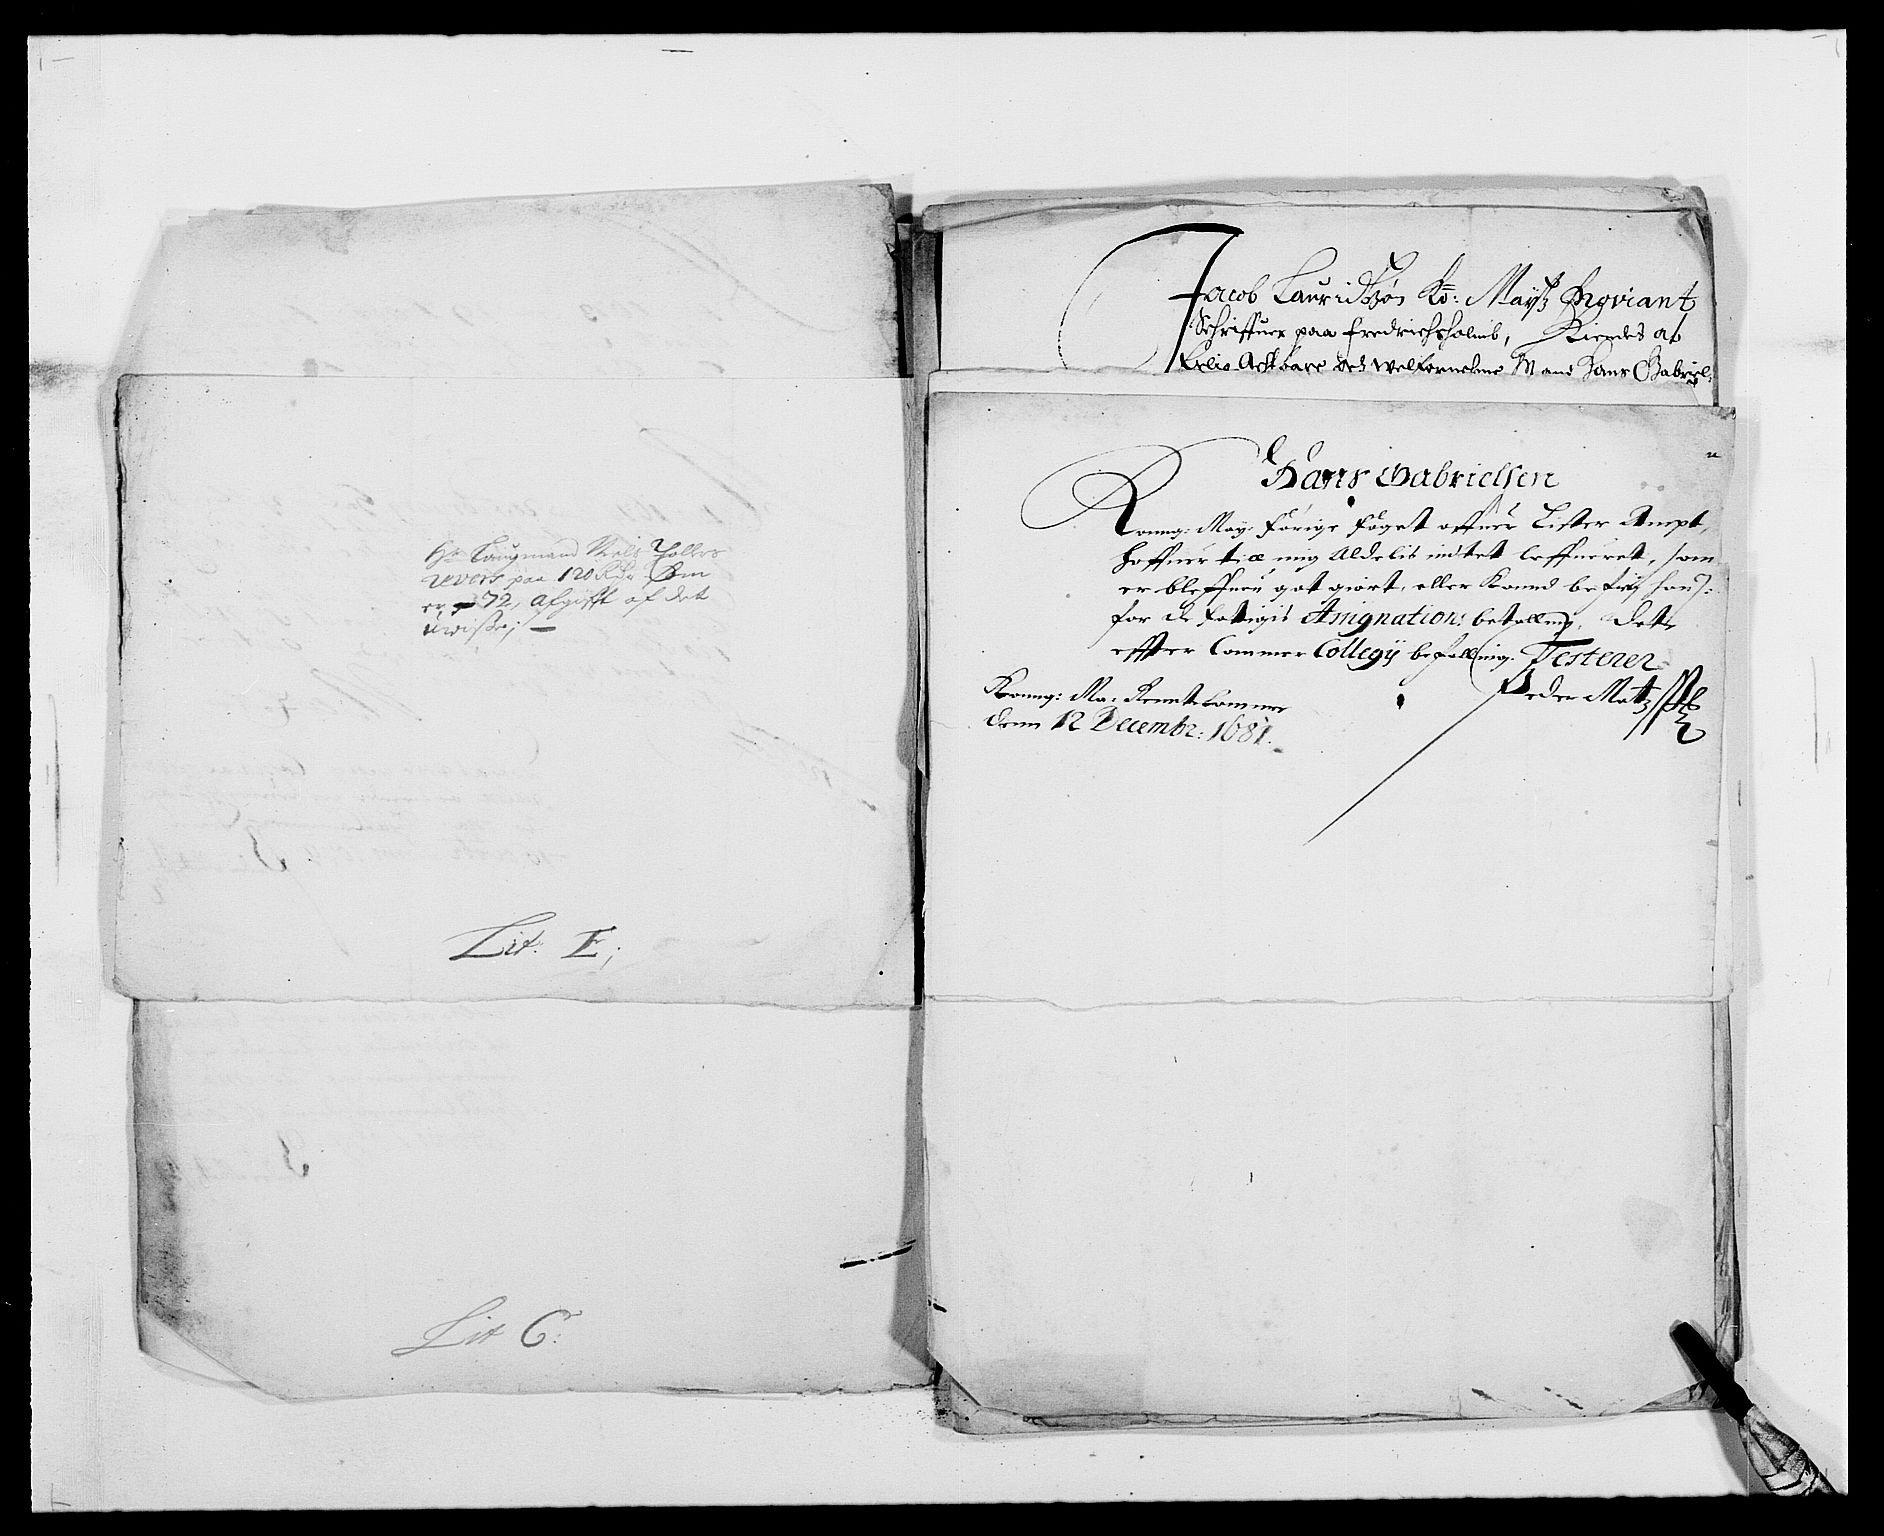 Hr Laugmand Niels Tollers
revers paa 120 Rdr Som
er 72, Afgifft af det
uwisse; —
Lit. E;
Lit C:
Jacob Lauridtzøn Ko: Maytz Proviant
Schriffuer paa Fredrichsholmb, Kiendes at
Erlig Actbare och Welfornehme Mand Hans Gabriel-
Hans Gabrielsen
Konng: May: forige foget offuer Lister Ampt,
haffuer till mig Aldelis intet leffueret, som
er bleffuen got giort, eller kannd befries hans
for de fattigis Assignation: betalling, Dette
effter Cammer Collegij befalling. Testerer
Konng: Ma: Rente Cammer
denn 12 Decembr: 1681.
Peder Matz